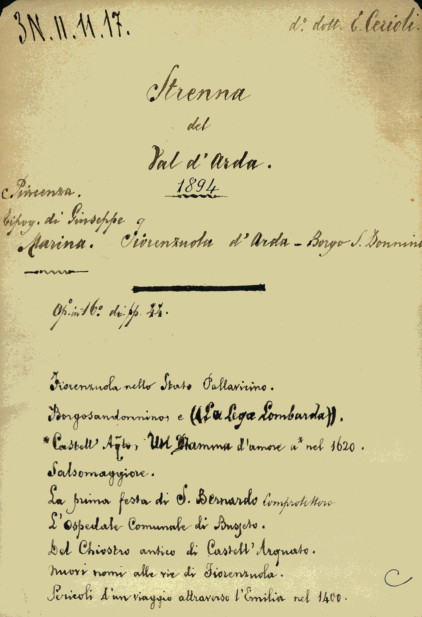 3N.II.11.17.
d.° dott. E. Cerioli.
Strenna
del
Val d'Arda.
1894
Piacenza.
Tipog. di Giuseppe
Marina.
Fiorenzuola d'Arda - Borgo S. Donnino
Op. in 16° di pp. 44.
Fiorenzuola nello Stato Pallavicino.
Borgosandonnino, e ((La Lega Lombarda)).
*Castell' Aq.to, Un Dramma d'amore nel 1620.
Salsomaggiore.
La prima festa di S. Bernardo Comprotettore
L'Ospedale Comunale di Busseto.
Del Chiostro antico di Castell' Arquato.
Nuovi nomi alle vie di Fiorenzuola.
Pericoli d'un viaggio attraverso l'Emilia nel 1400.
C